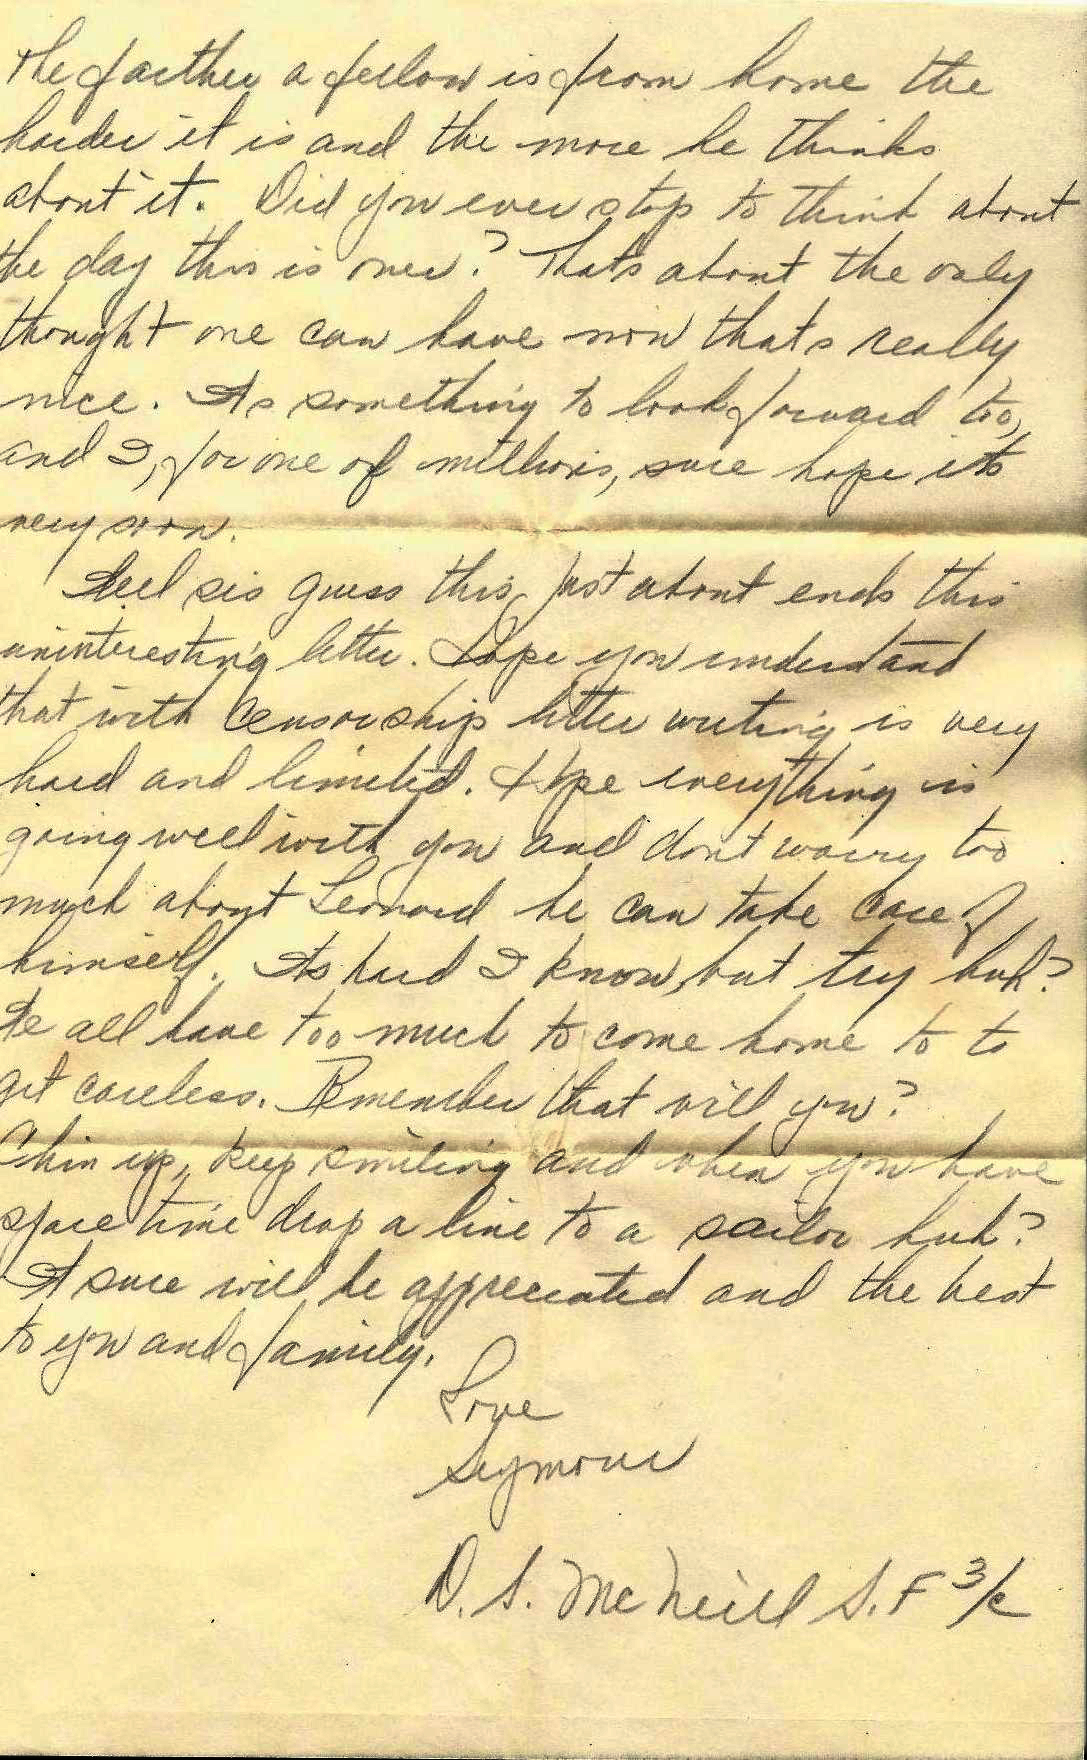 The farther a fellow is from home the
harder it is and the more he thinks
about it. Did you ever stop to think about
the day this is over? Thats about the only
thought one can have now thats really
nice. Its something to look forward too,
and I, for one of millions, sure hope its
very soon.
Well sis guess this just about ends this
uninteresting letter. Hope you understand
that with censorship letter writing is very
hard and limited. Hope everything is
going well with you and dont worry too
much about Leonard he can take care of
himself. Its hard I know, but try huh?
We all have too much to come home to to
get careless. Remember that will you?
Chin up, keep smiling and when you have
spare time drop a line to a sailor huh?
It sure will be appreciated and the best
to you and family.
Love
Seymour
D. S. McNeill S. F 3/c